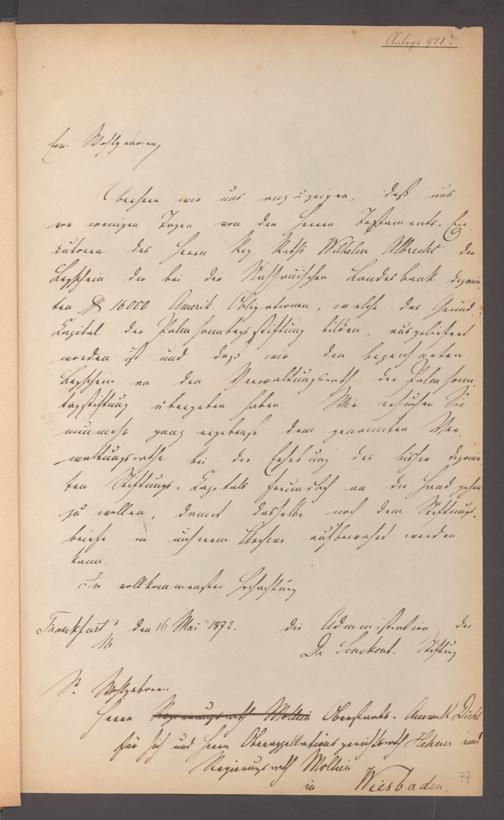 Anlage 921.
Ew. Wohlgeboren,
beehren wir uns anzuzeigen, daß uns
vor wenigen Tagen von den Herren Testaments-Exe-
kutoren des Herrn Reg. Raths Wilhelm Albrecht der
Legschein der bei der Nassauischen Landesbank deponir-
ten $ 15000 Amerik. Obligationen, welche das Grund-
Kapital der Palmsonntagsstiftung bilden, ausgeliefert
worden ist und daß wir den bezeichneten
Legschein an den Verwaltungsrath der Palmsonn-
tagsstiftung übergeben haben. Wir ersuchen Sie
nunmehr ganz ergebenst dem genannten Ver-
waltungsrathe bei der Erhebung des bisher deponir-
ten Stiftungs-Kapitals freundlich an die Hand gehen
zu wollen, damit dasselbe nach dem Stiftungs-
briefe in unserem Archive aufbewahrt werden
kann.
In vollkommenster Hochachtung
Frankfurt a/M den 16 Mai 1872. die Administration der
Dr. Senckenb. Stiftung
Sr. Wohlgeboren
Herrn Regierungsrath Mollier Oberstaats-Anwalt
für sich und Herrn Oberappellationsgerichtsrath Hehner und
Regierungsrath Mollier
in Wiesbaden.
77